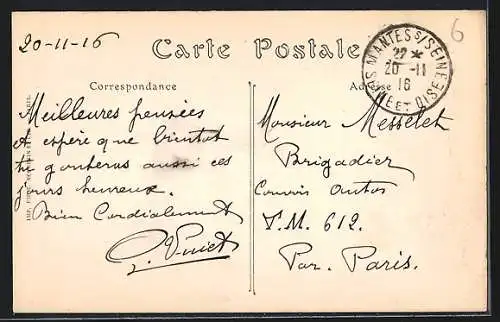 20-11-16
Carte Postale
6
MANTES S/ SEINE
22 *
20 -11
16
SEINE ET OISE
Correspondance
Adresse
Meilleures pensées
et espère que bientot
tu gouteras aussi ces
jours heureux.
Bien Cordialement
Monsieur Messelet
Brigadier
Convois autos
T.M. 612.
Par. Paris.